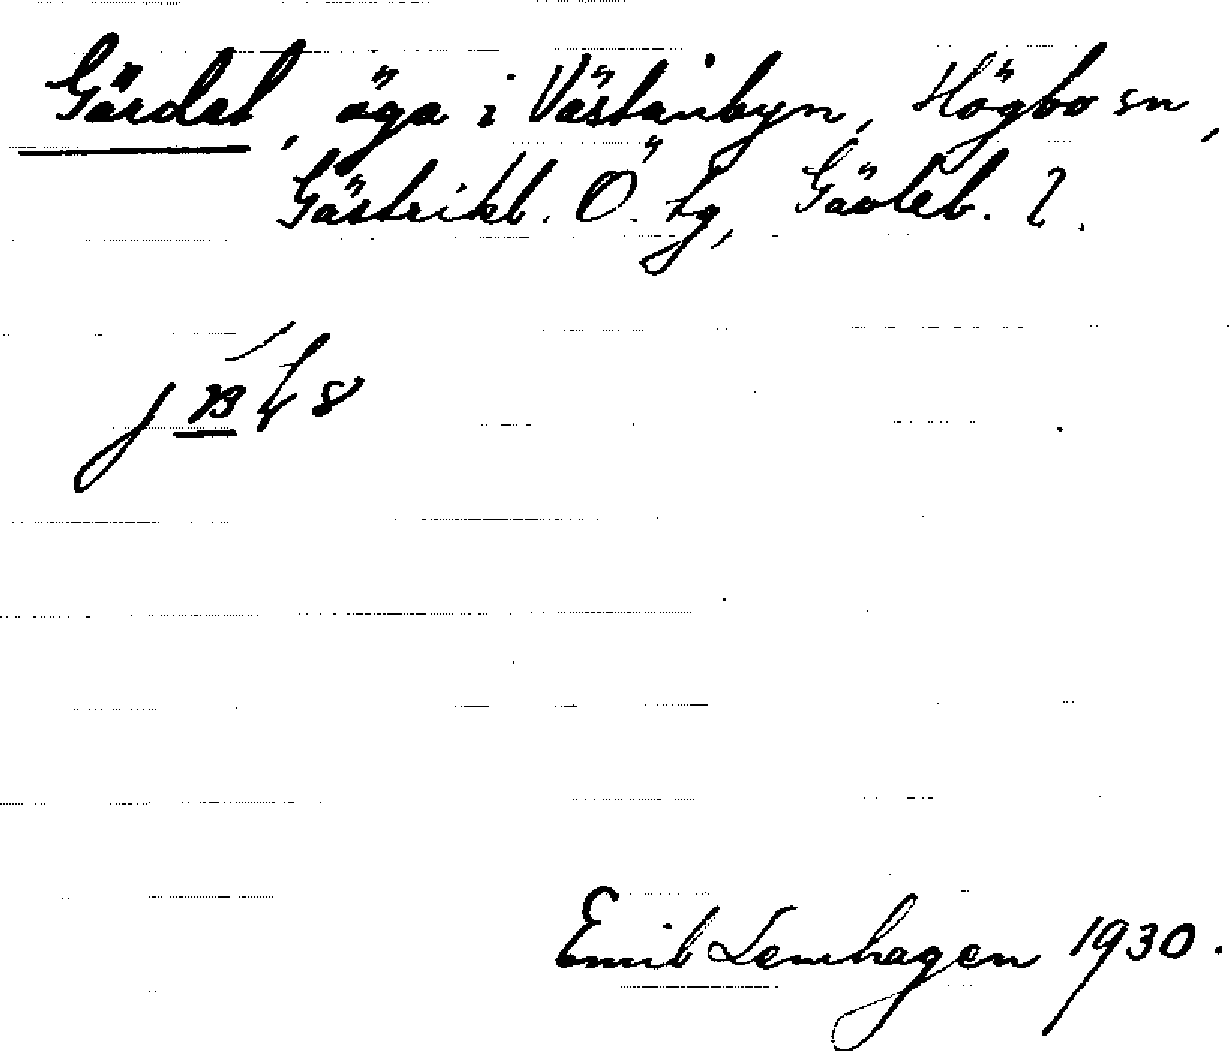 Gärdet, äga i Västanbyn, Högbo sn,
Gästrikl. Ö. tg, Gävleb. l.
Emil Lemhagen 1930.